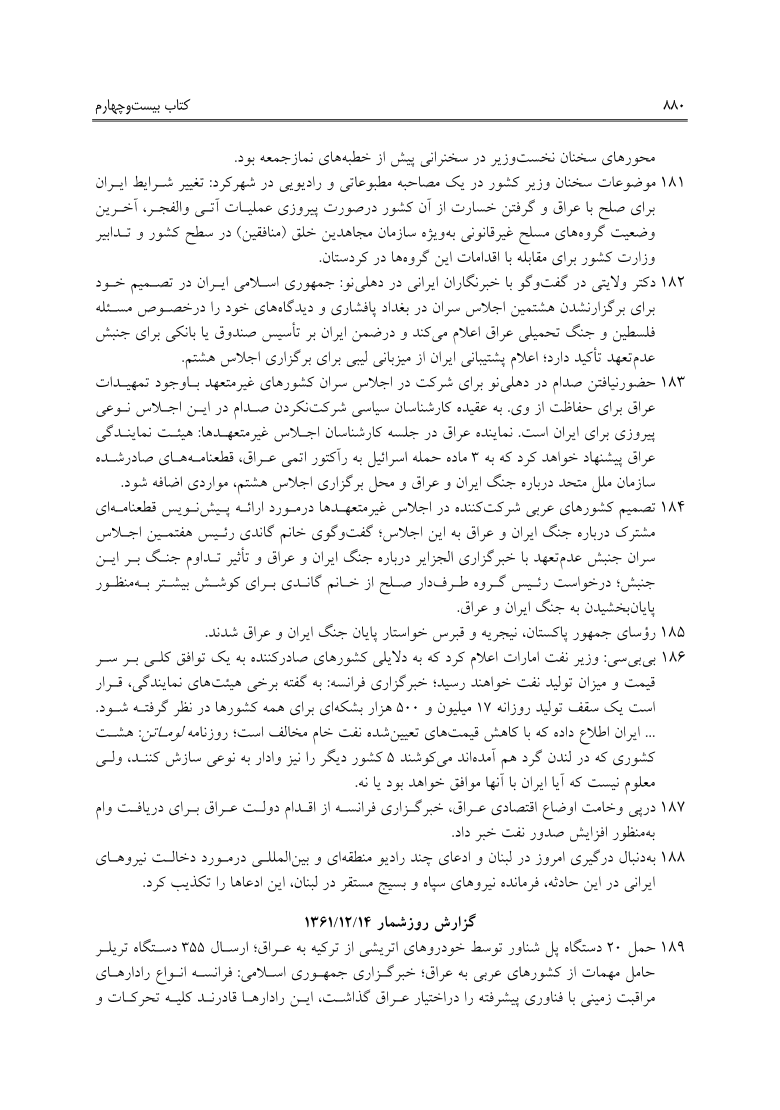 ۸۸۰ کتاب بیست‌وچهارم
محورهای سخنان نخست‌وزیر در سخنرانی پیش از خطبه‌های نمازجمعه بود.
۱۸۱ موضوعات سخنان وزیر کشور در یک مصاحبه مطبوعاتی و رادیویی در شهرکرد: تغییر شرایط ایران
برای صلح با عراق و گرفتن خسارت از آن کشور درصورت پیروزی عملیات آتی والفجر، آخرین
وضعیت گروه‌های مسلح غیرقانونی به‌ویژه سازمان مجاهدین خلق (منافقین) در سطح کشور و تدابیر
وزارت کشور برای مقابله با اقدامات این گروه‌ها در کردستان.
۱۸۲ دکتر ولایتی در گفت‌وگو با خبرنگاران ایرانی در دهلی‌نو: جمهوری اسلامی ایران در تصمیم خود
برای برگزارنشدن هشتمین اجلاس سران در بغداد پافشاری و دیدگاه‌های خود را درخصوص مسئله
فلسطین و جنگ تحمیلی عراق اعلام می‌کند و درضمن ایران بر تأسیس صندوق یا بانکی برای جنبش
عدم‌تعهد تأکید دارد؛ اعلام پشتیبانی ایران از میزبانی لیبی برای برگزاری اجلاس هشتم.
۱۸۳ حضورنیافتن صدام در دهلی‌نو برای شرکت در اجلاس سران کشورهای غیرمتعهد باوجود تمهیدات
عراق برای حفاظت از وی. به عقیده کارشناسان سیاسی شرکت‌نکردن صدام در این اجلاس نوعی
پیروزی برای ایران است. نماینده عراق در جلسه کارشناسان اجلاس غیرمتعهدها: هیئت نمایندگی
عراق پیشنهاد خواهد کرد که به ۳ ماده حمله اسرائیل به رآکتور اتمی عراق، قطعنامه‌های صادرشده
سازمان ملل متحد درباره جنگ ایران و عراق و محل برگزاری اجلاس هشتم، مواردی اضافه شود.
۱۸۴ تصمیم کشورهای عربی شرکت‌کننده در اجلاس غیرمتعهدها درمورد ارائه پیش‌نویس قطعنامه‌ای
مشترک درباره جنگ ایران و عراق به این اجلاس؛ گفت‌وگوی خانم گاندی رئیس هفتمین اجلاس
سران جنبش عدم‌تعهد با خبرگزاری الجزایر درباره جنگ ایران و عراق و تأثیر تداوم جنگ بر این
جنبش؛ درخواست رئیس گروه طرف‌دار صلح از خانم گاندی برای کوشش بیشتر به‌منظور
پایان‌بخشیدن به جنگ ایران و عراق.
۱۸۵ رؤسای جمهور پاکستان، نیجریه و قبرس خواستار پایان جنگ ایران و عراق شدند.
۱۸۶ بی‌بی‌سی: وزیر نفت امارات اعلام کرد که به دلایلی کشورهای صادرکننده به یک توافق کلی بر سر
قیمت و میزان تولید نفت خواهند رسید؛ خبرگزاری فرانسه: به گفته برخی هیئت‌های نمایندگی، قرار
است یک سقف تولید روزانه ۱۷ میلیون و ۵۰۰ هزار بشکه‌ای برای همه کشورها در نظر گرفته شود.
... ایران اطلاع داده که با کاهش قیمت‌های تعیین‌شده نفت خام مخالف است؛ روزنامه لوماتن: هشت
کشوری که در لندن گرد هم آمده‌اند می‌کوشند ۵ کشور دیگر را نیز وادار به نوعی سازش کنند، ولی
معلوم نیست که آیا ایران با آنها موافق خواهد بود یا نه.
۱۸۷ درپی وخامت اوضاع اقتصادی عراق، خبرگزاری فرانسه از اقدام دولت عراق برای دریافت وام
به‌منظور افزایش صدور نفت خبر داد.
۱۸۸ به‌دنبال درگیری امروز در لبنان و ادعای چند رادیو منطقه‌ای و بین‌المللی درمورد دخالت نیروهای
ایرانی در این حادثه، فرمانده نیروهای سپاه و بسیج مستقر در لبنان، این ادعاها را تکذیب کرد.
گزارش روزشمار ۱۳۶۱/۱۲/۱۴
۱۸۹ حمل ۲۰ دستگاه پل شناور توسط خودروهای اتریشی از ترکیه به عراق؛ ارسال ۳۵۵ دستگاه تریلر
حامل مهمات از کشورهای عربی به عراق؛ خبرگزاری جمهوری اسلامی: فرانسه انواع رادارهای
مراقبت زمینی با فناوری پیشرفته را دراختیار عراق گذاشت، این رادارها قادرند کلیه تحرکات و